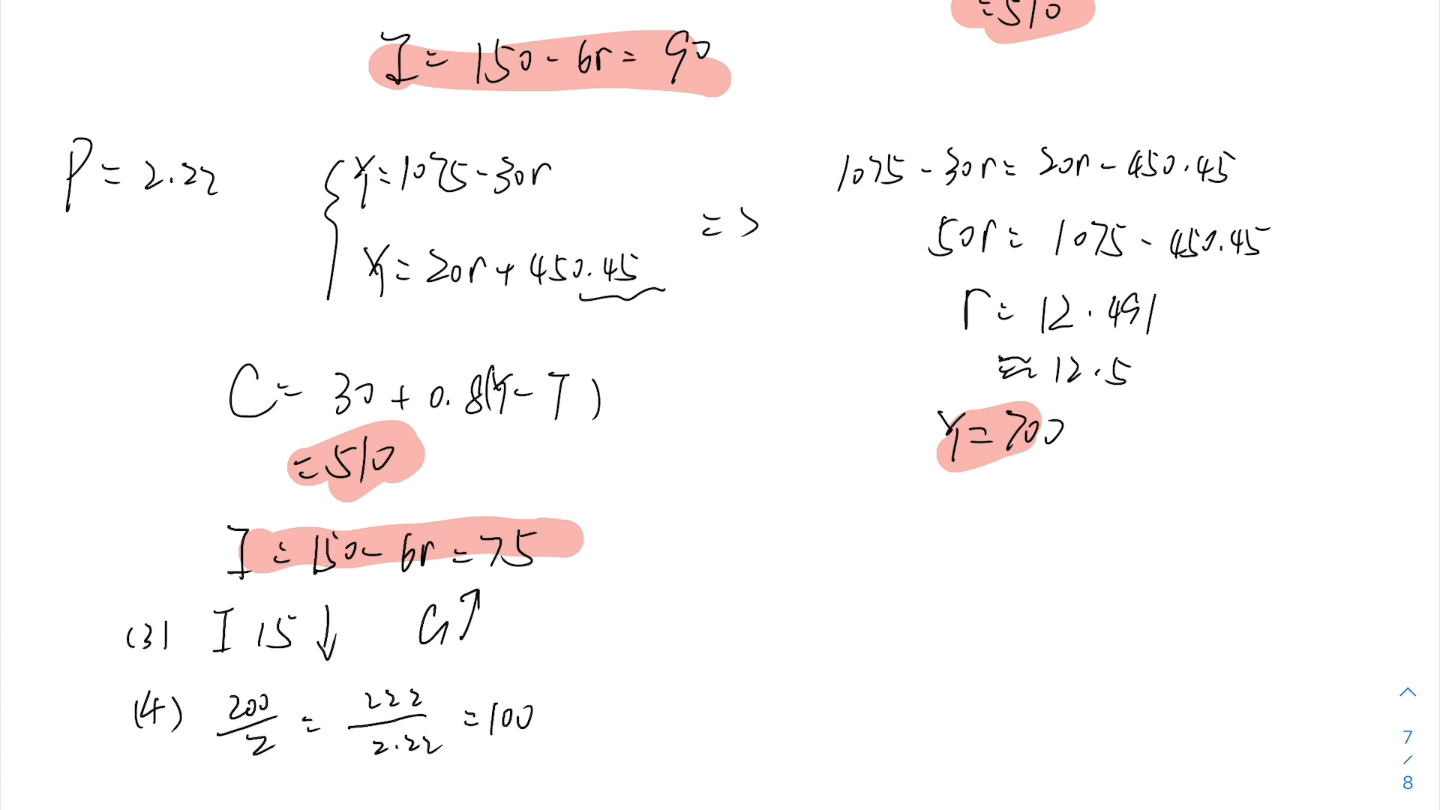 =510
I = 150 - 6r = 90
P = 2.22
Y = 1075 - 30r
Y = 20r + 450.45
=>
1075 - 30r = 20r - 450.45
50r = 1075 - 450.45
r = 12.491
≈ 12.5
Y = 700
C = 30 + 0.8(Y - T)
= 510
I = 150 - 6r = 75
(3) I 15 ↓ G ↑
(4) 200/2 = 222/2.22 = 100
7
/
8